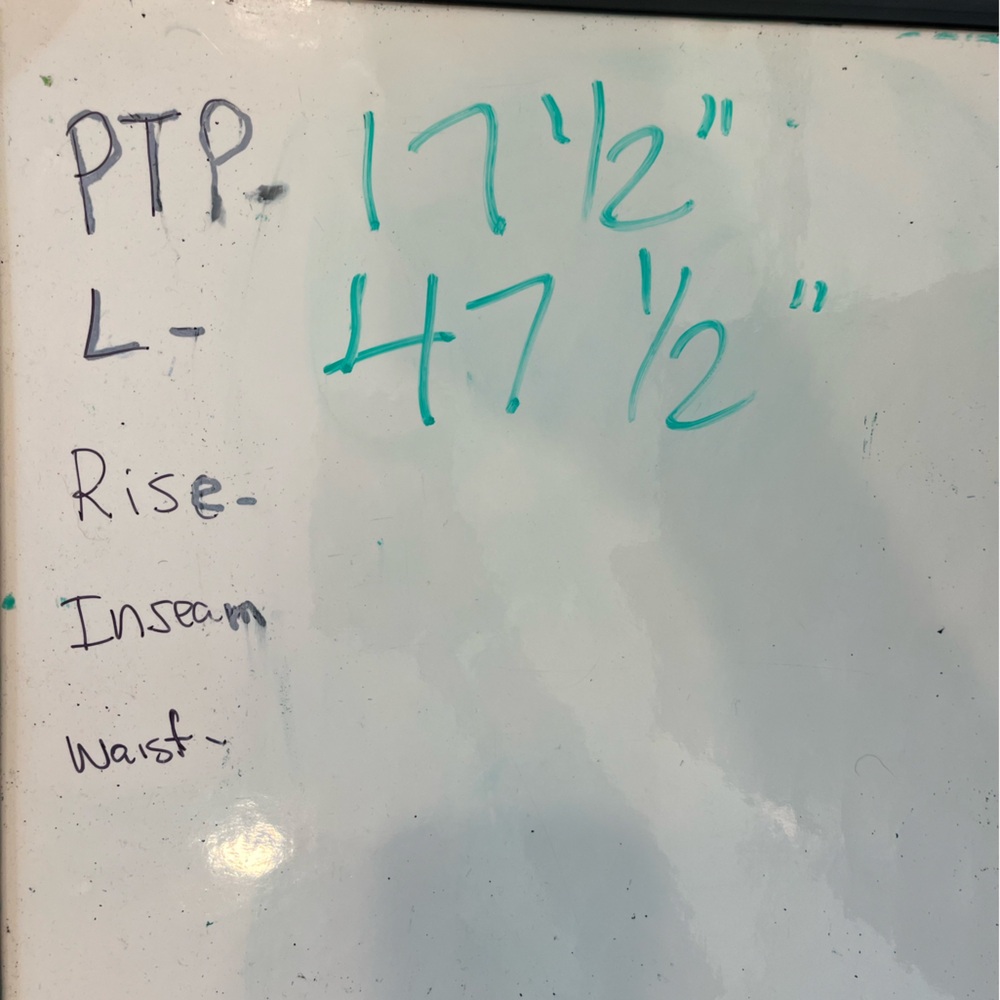 PTP- 17 1/2"
L- 47 1/2"
Rise-
Inseam
Waist-